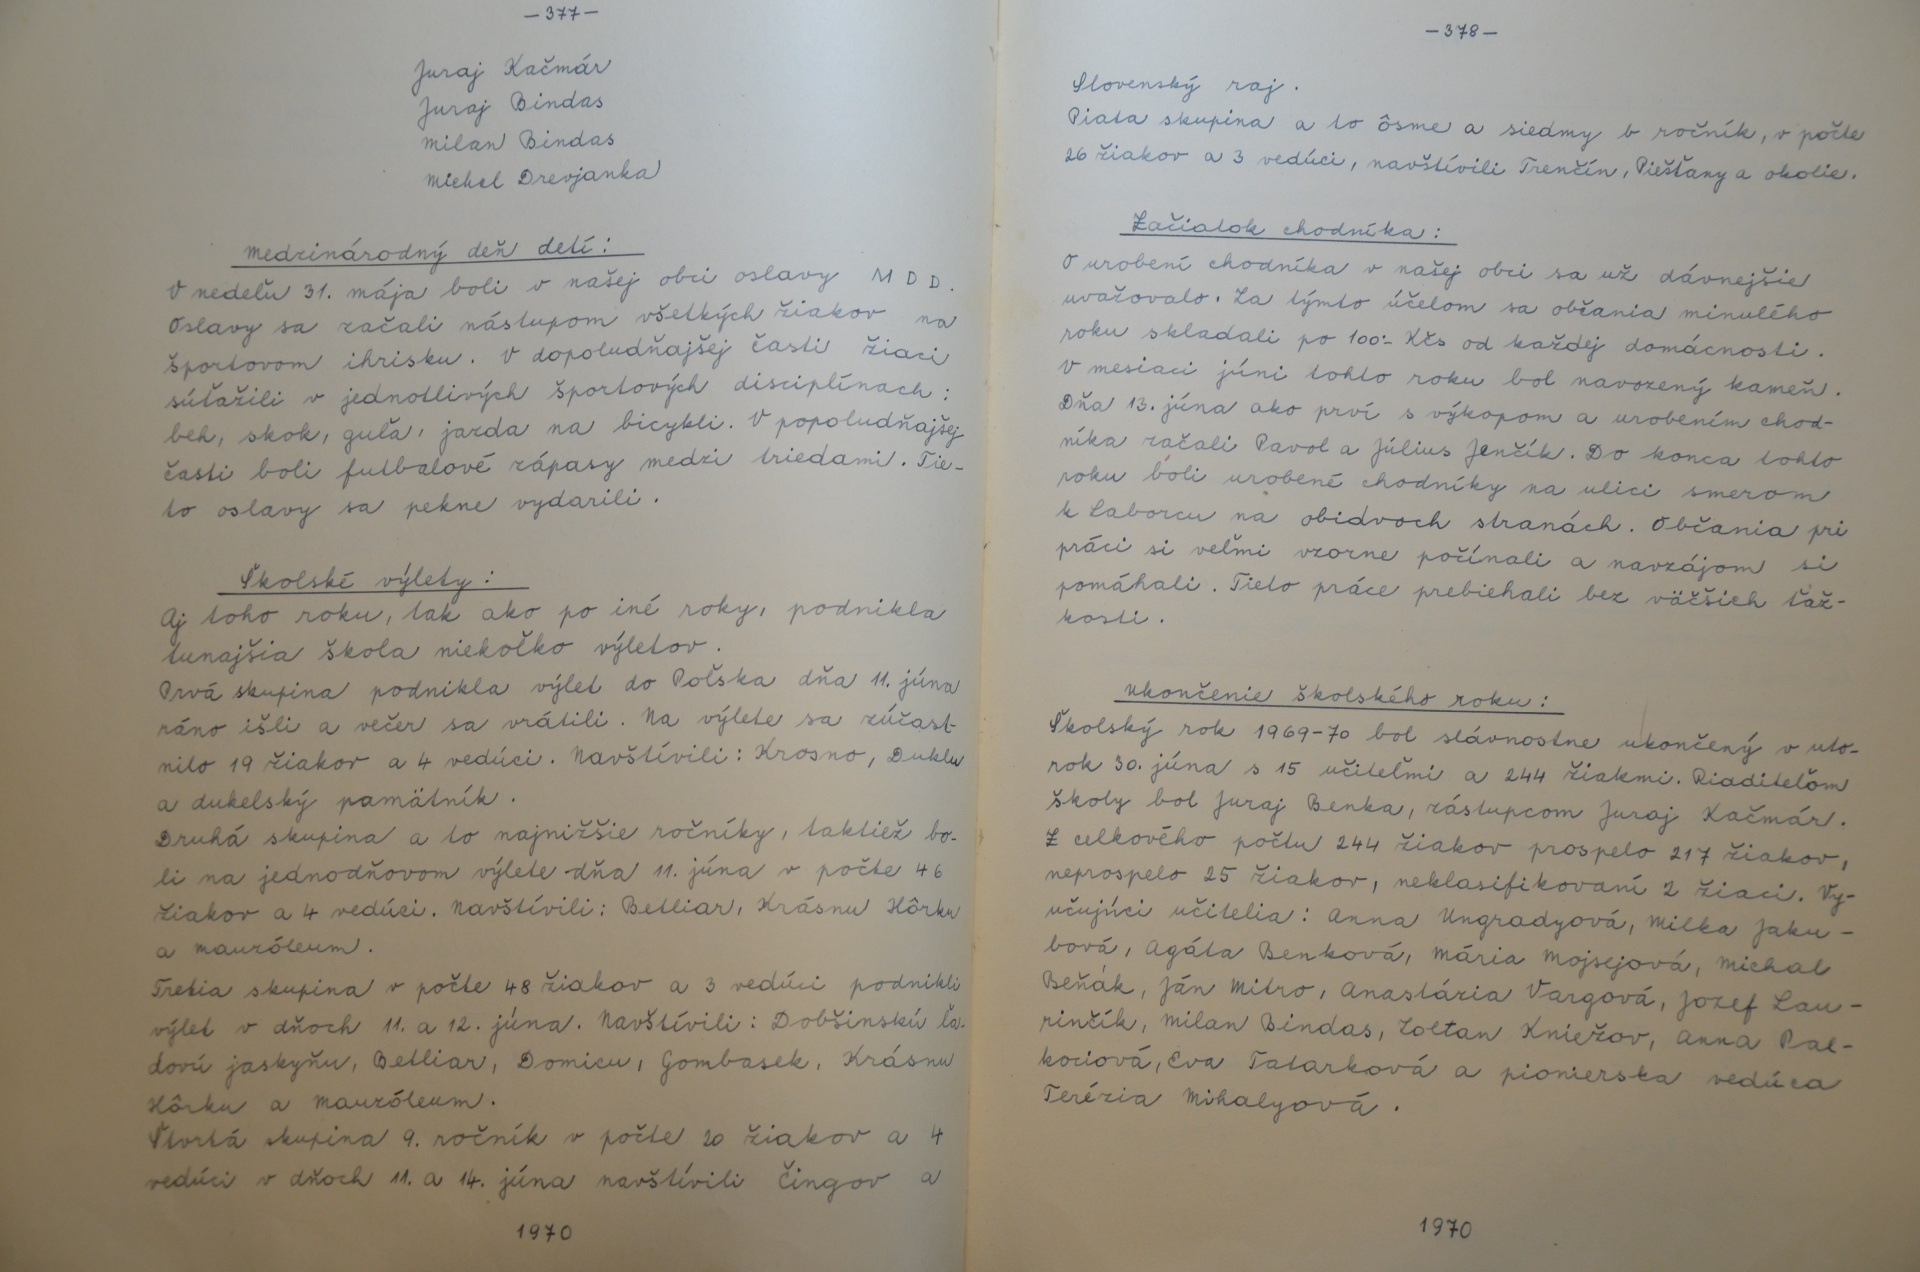 -377-
Juraj Kačmár
Juraj Bindas
Milan Bindas
Michal Drevjanka
Medzinárodný deň detí:
V nedeľu 31. mája boli v našej obci oslavy M D D.
Oslavy sa začali nástupom všetkých žiakov na
športovom ihrisku. V dopoludňajšej časti žiaci
súťažili v jednotlivých športových disciplínach:
beh, skok, guľa, jazda na bicykli. V popoludňajšej
časti boli futbalové zápasy medzi triedami. Tie-
to oslavy sa pekne vydarili.
Školské výlety:
Aj toho roku, tak ako po iné roky, podnikla
tunajšia škola niekoľko výletov.
Prvá skupina podnikla výlet do Poľska dňa 11. júna
ráno išli a večer sa vrátili. Na výlete sa zúčast-
nilo 19 žiakov a 4 vedúci. Navštívili: Krosno, Duklu
a dukelský pamätník.
Druhá skupina a to najnižšie ročníky, taktiež bo-
li na jednodňovom výlete dňa 11. júna v počte 46
žiakov a 4 vedúci. Navštívili: Betliar, Krásnu Hôrku
a mauzóleum.
Tretia skupina v počte 48 žiakov a 3 vedúci podnikli
výlet v dňoch 11. a 12. júna. Navštívili: Dobšinskú ľa-
dovú jaskyňu, Betliar, Domicu, Gombasek, Krásnu
Hôrku a mauzóleum.
Štvrtá skupina 9. ročník v počte 20 žiakov a 4
vedúci v dňoch 11. a 14. júna navštívili Čingov a
1970
-378-
Slovenský raj.
Piata skupina a to ôsme a siedmy b ročník, v počte
26 žiakov a 3 vedúci, navštívili Trenčín, Piešťany a okolie.
Začiatok chodníka:
O urobení chodníka v našej obci sa už dávnejšie
uvažovalo. Za týmto účelom sa občania minulého
roku skladali po 100:- Kčs od každej domácnosti.
V mesiaci júni tohto roku bol navozený kameň.
Dňa 13. júna ako prví s výkopom a urobením chod-
níka začali Pavol a Július Jenčík. Do konca tohto
roku boli urobené chodníky na ulici smerom
k Laborcu na obidvoch stranách. Občania pri
práci si veľmi vzorne počínali a navzájom si
pomáhali. Tieto práce prebiehali bez väčších ťaž-
kostí.
Ukončenie školského roku:
Školský rok 1969-70 bol slávnostne ukončený v uto-
rok 30. júna s 15 učiteľmi a 244 žiakmi. Riaditeľom
školy bol Juraj Benka, zástupcom Juraj Kačmár.
Z celkového počtu 244 žiakov prospelo 217 žiakov,
neprospelo 25 žiakov, neklasifikovaní 2 žiaci. Vy-
učujúci učitelia: Anna Ungradyová, Milka Jaku-
bová, Agáta Benková, Mária Mojsejová, Michal
Beňák, Ján Mitro, Anastázia Vargová, Jozef Lau-
rinčík, Milan Bindas, Zoltan Kniežov, Anna Pal-
kociová, Eva Tatarková a pionierska vedúca
Terézia Mihalyová.
1970